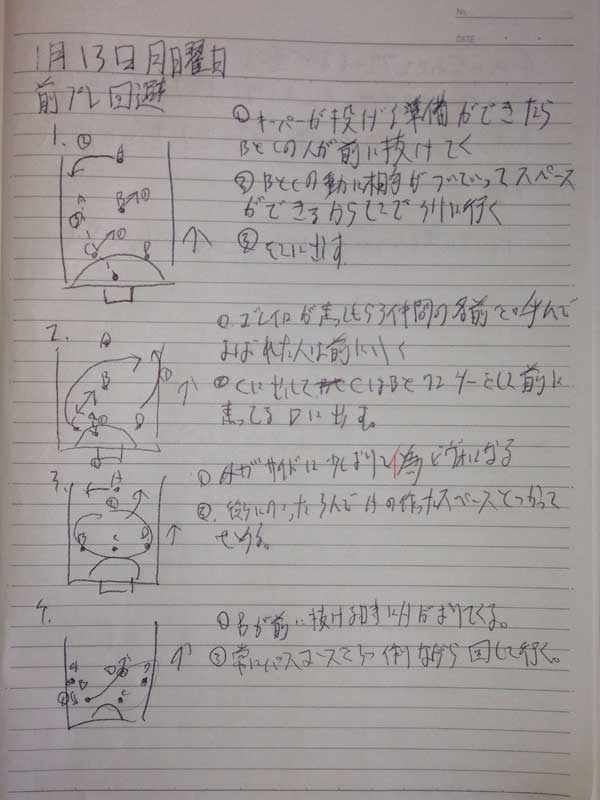 No.
DATE
1月13日月曜日
前プレ回避
1.
①キーパーが投げる準備ができたら
BとCの人が前に抜けてく
②BとCの動に相手がついていってスペース
ができるからそこでうけに行く
③そこに出す
2.
①ゴレイロが走しもらう仲間の名前を呼んで
よばれた人は前にいく
②Cに出してCはBとワンツーをして前に
走ってるDに出す。
3.
①Aがサイドに少しおりて
②
Aの作ったスペースをつかって
せめる。
4.
①Bが前に抜ける時にAがおりてくる。
②常にパスコースを作りながら回して行く。